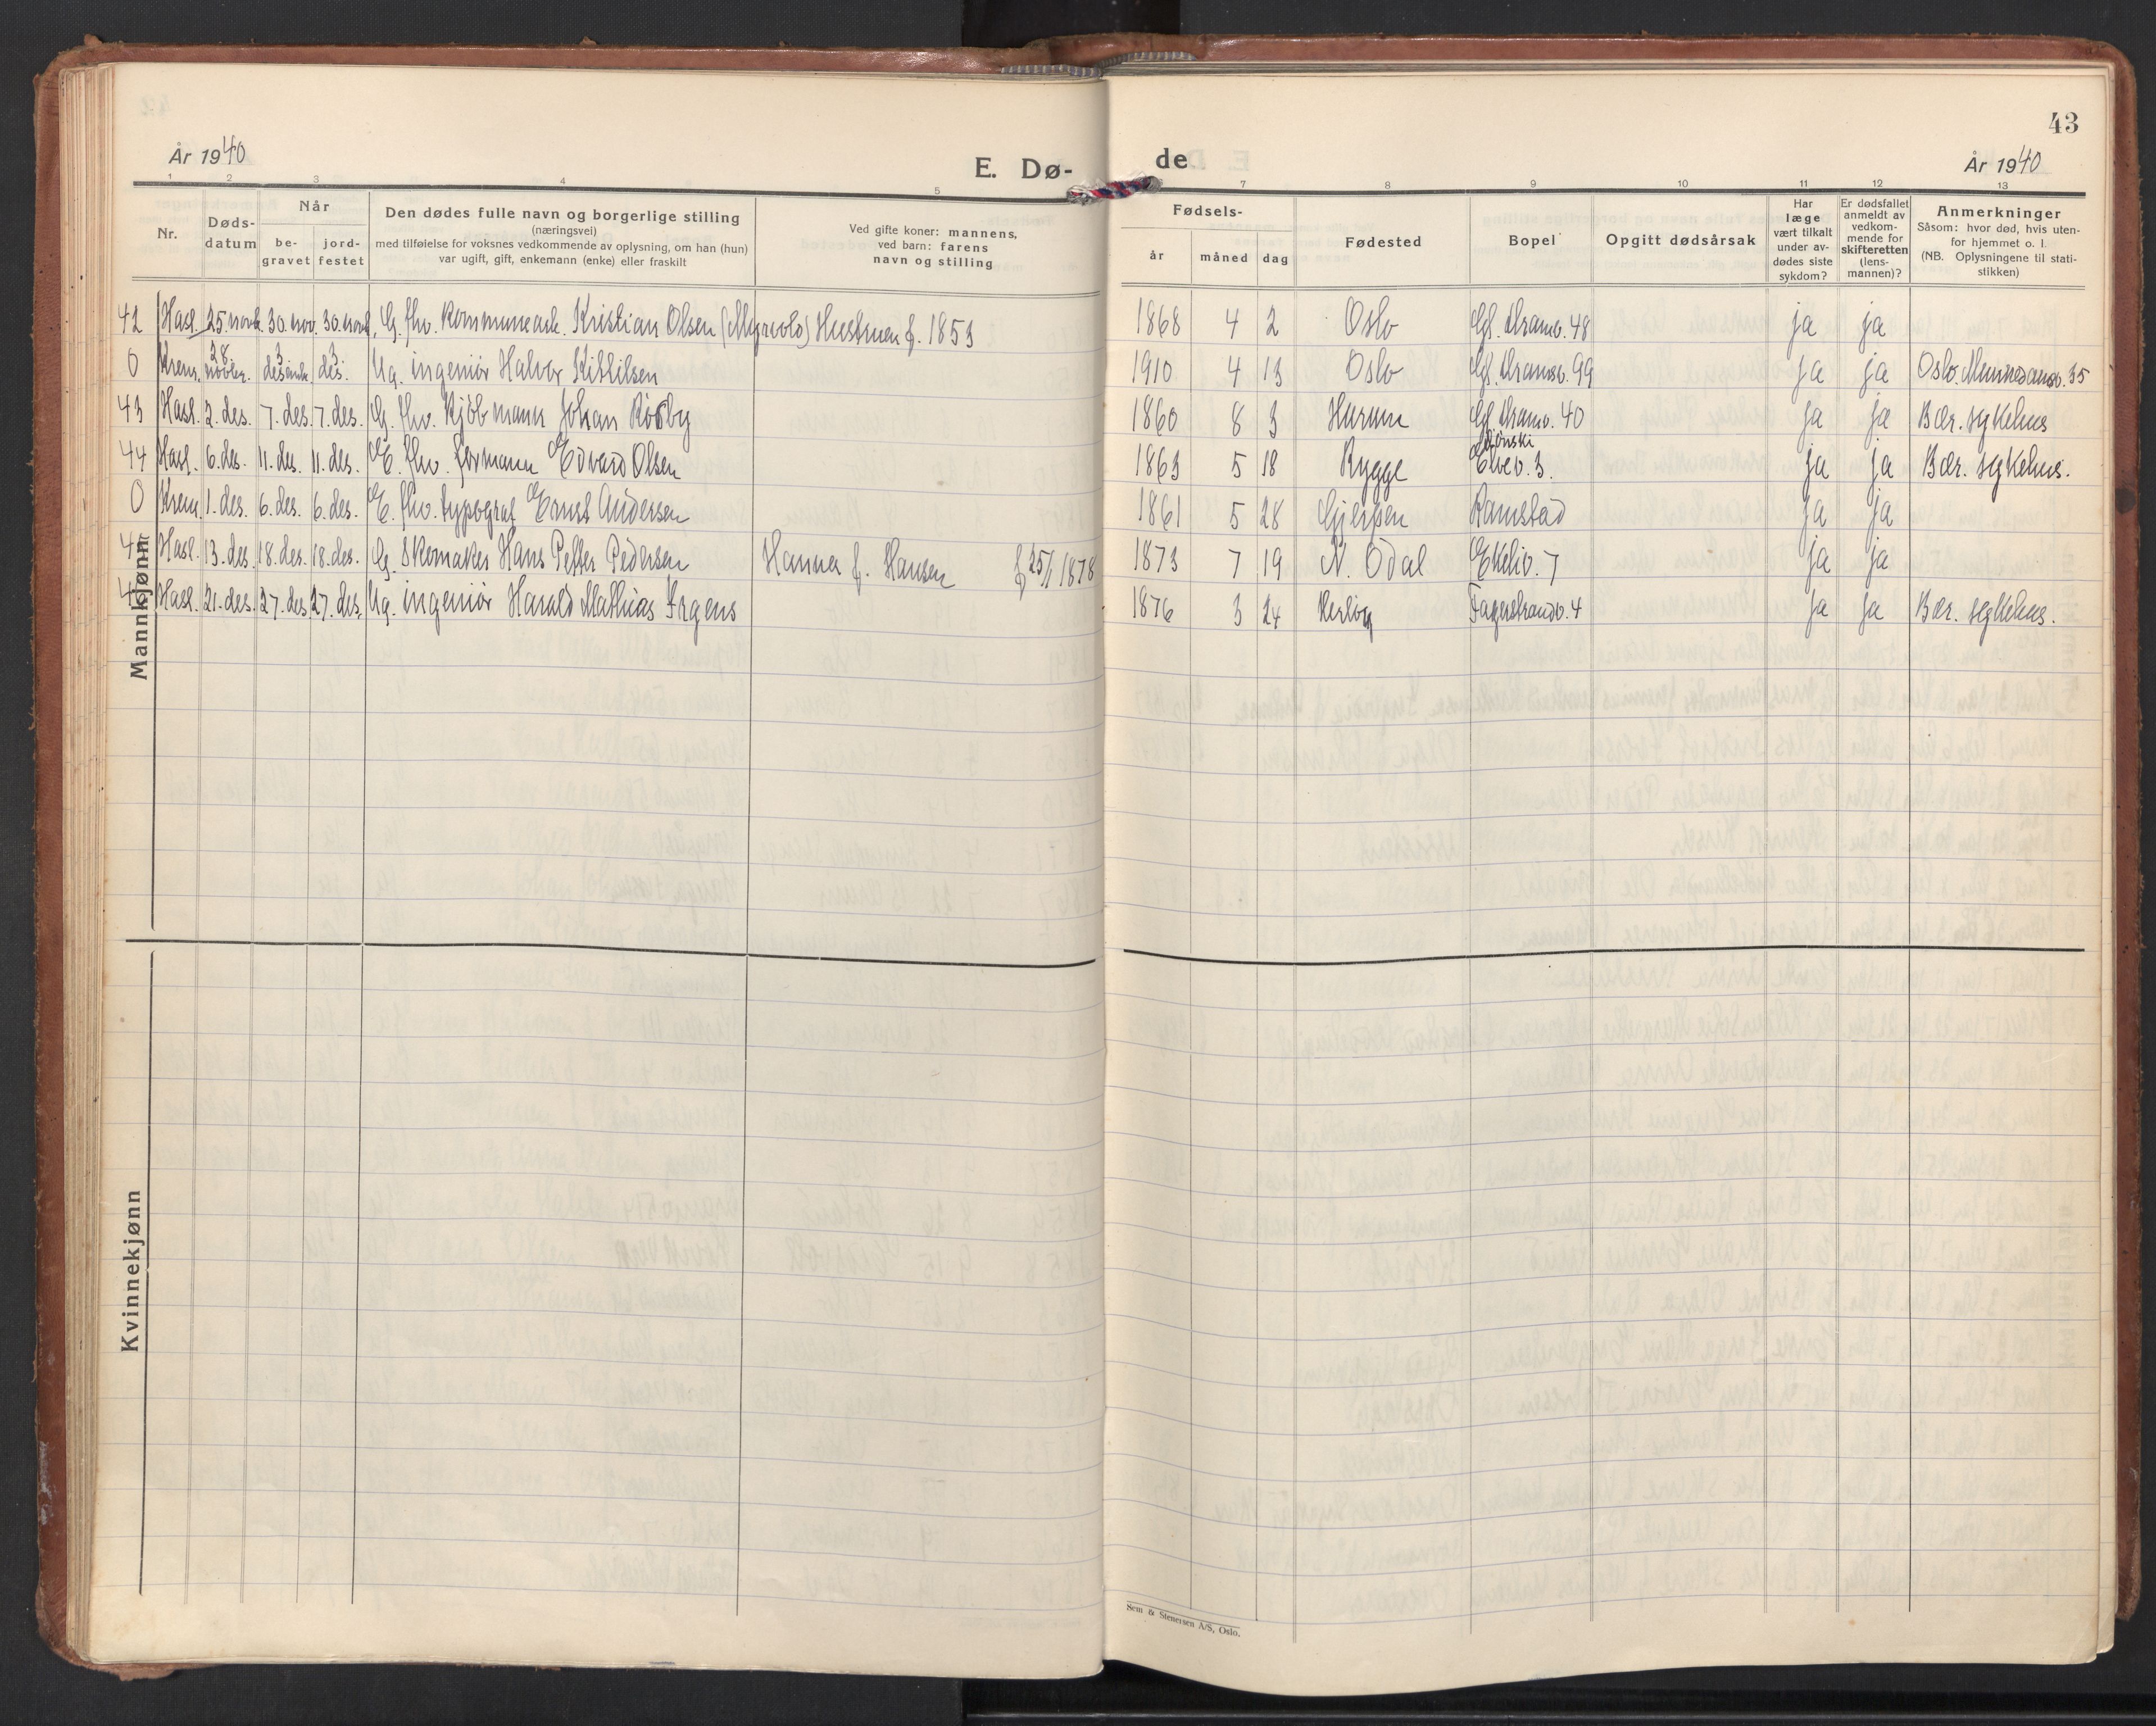 43
År 1940
E. Dø-
de
År 1940
1 2 3 4 5 7 8 9 10 11 12 13
Nr.
Døds-
datum
Når
be-
gravet
jord-
festet
Den dødes fulle navn og borgerlige stilling
(næringsvei)
med tilføielse for voksnes vedkommende av oplysning, om han (hun)
var ugift, gift, enkemann (enke) eller fraskilt
Ved gifte koner: mannens,
ved barn: farens
navn og stilling
Fødsels-
år
måned
dag
Fødested
Bopel
Opgitt dødsårsak
Har
læge
vært tilkalt
under av-
dødes siste
sykdom?
Er dødsfallet
anmeldt av
vedkom-
mende for
skifteretten
(lens-
mannen)?
Anmerkninger
Såsom: hvor død, hvis uten-
for hjemmet o. l.
(NB. Oplysningene til stati-
stikken)
42 Hasl. 25. novb. 30. nov. 30. novb. G. fhv. kommunearb. Kristian Olsen Hustruen f. 1853 1868 4 2 Oslo Gl. Dramv. 48 ja ja
0 Krem. 28 novber. 3 desemb. 3. des. Ug. ingeniör Halvor Kittilsen 1910 4 13 Oslo Gl. Dramsv. 99 ja ja Oslo. 35
43 Hasl. 2. des. 7. des. 7. des. G. fhv. kjöbmann Johan Rösby 1860 8 3 Hurum Gl. Dramv. 40 ja ja Bær. sykehus
44 Hasl. 6. des. 11. des. 11. des. E. fhv. formann Edvard Olsen 1863 5 18 Rygge Elvev. 3. ja ja Bær. sykehus.
0 Krem. 1. des. 6. des. 6. des. E. fhv. typograf Ernst Andersen 1861 5 28 Gjerpen Ramstad ja ja
Hasl. 13. des. 18. des. 18. des. G. skomaker Hans Petter Pedersen Hanna f. Hansen f 25/1 1878 1873 7 19 N. Odal Ekeliv. 7 ja ja
46 Hasl. 21. des. 27. des. 27. des. Ug. ingeniör Harald Mathias Irgens 1876 3 24 Fagerstrandv. 4 ja ja Bær. sykehus.
Mannkjønn
Kvinnekjønn
Sem & Stenersen A/S, Oslo.